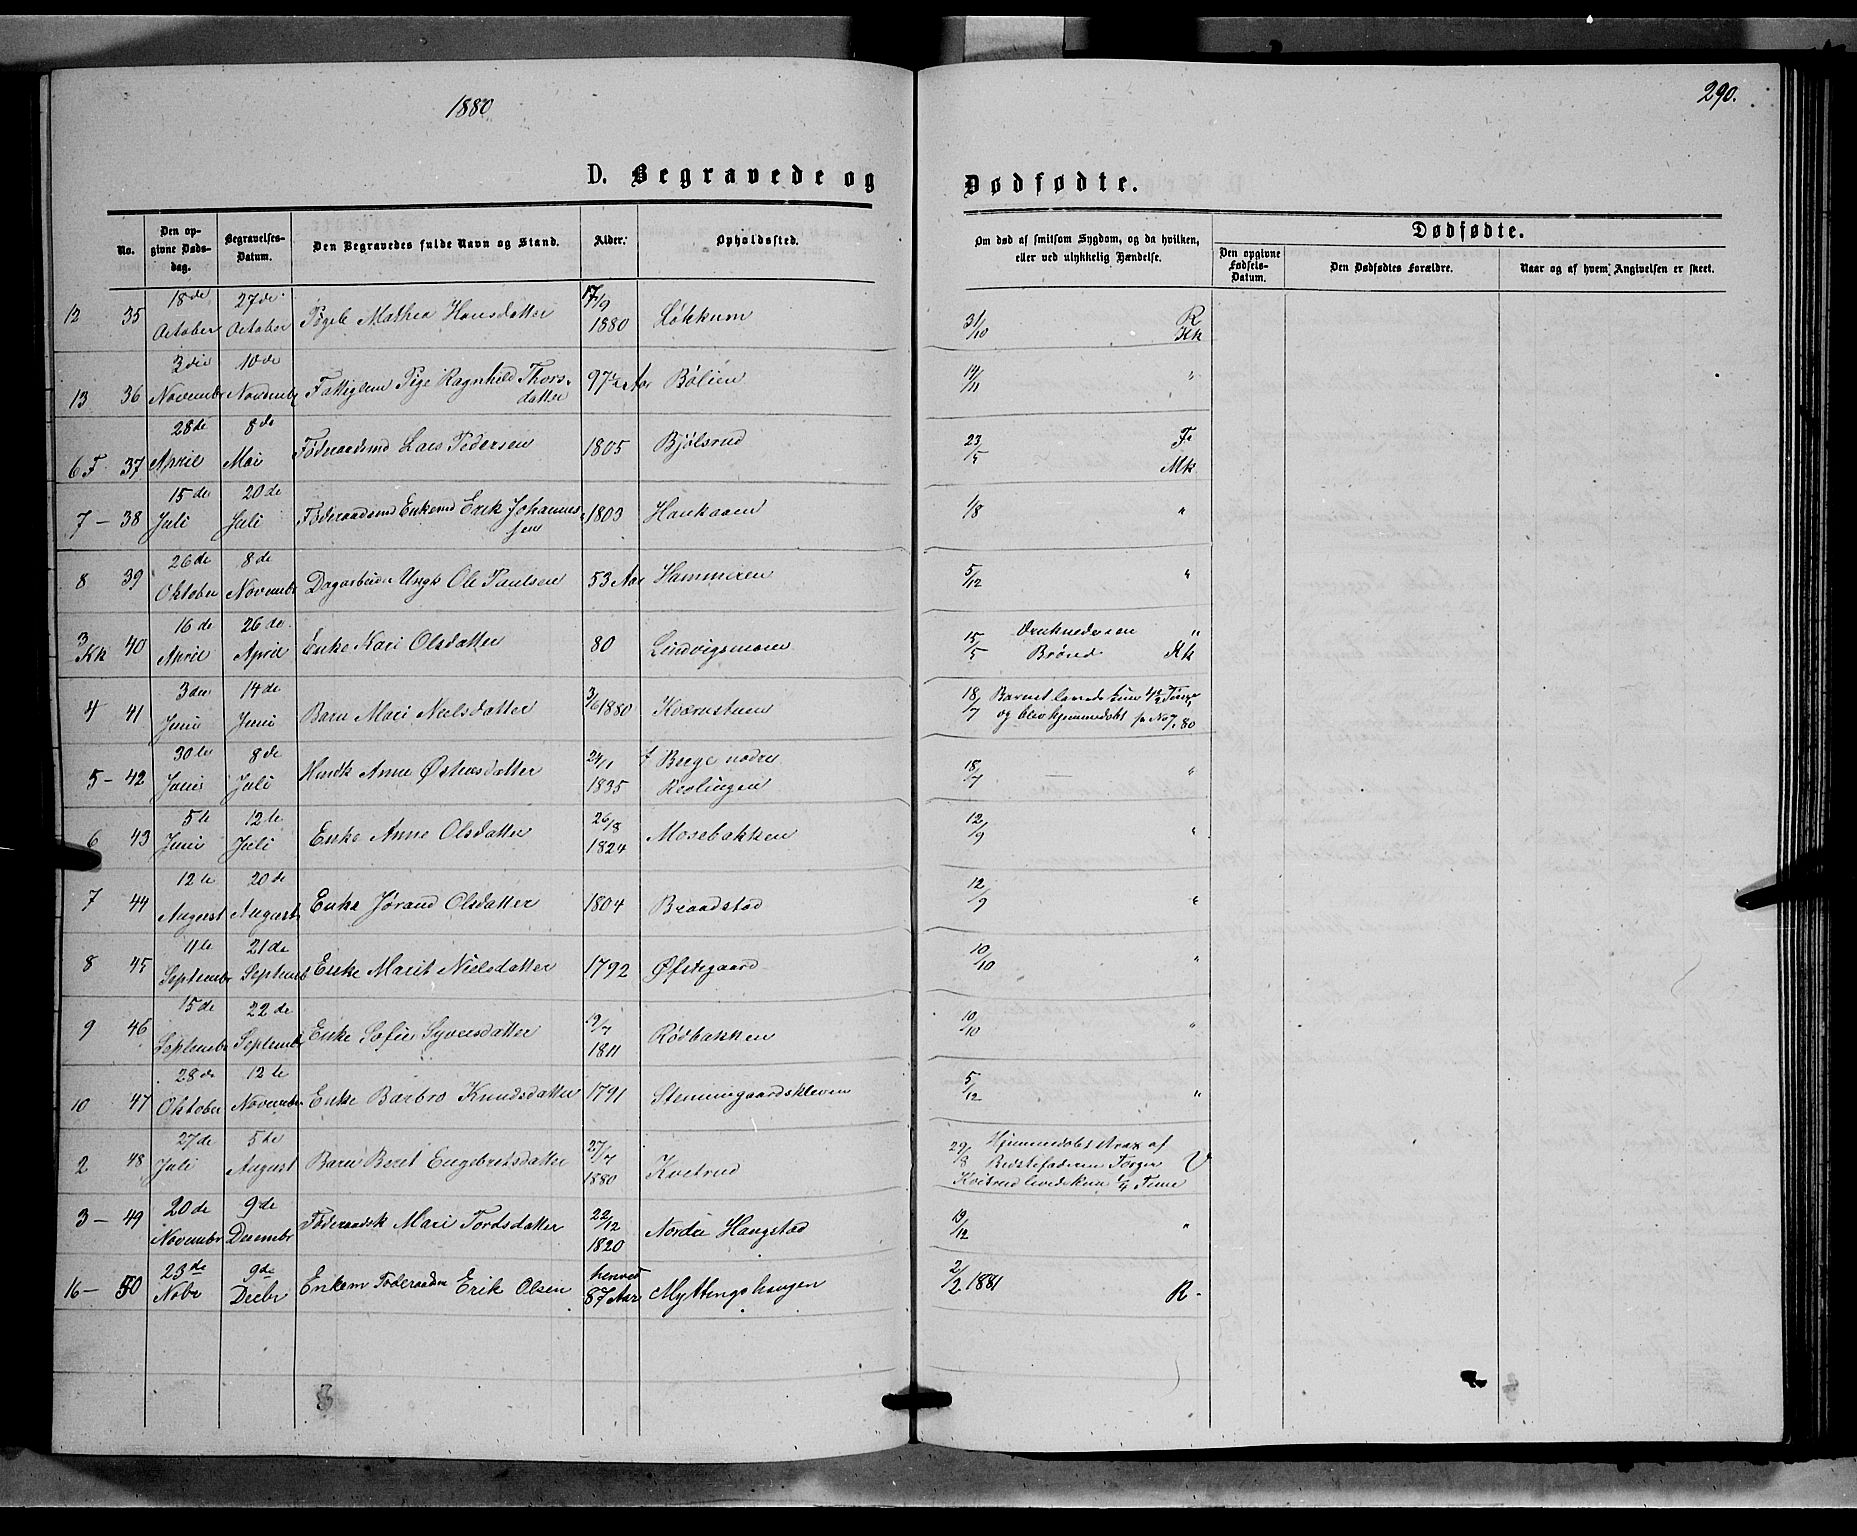 1880
290.
D. Begravede og Dødfødte.
No.
Den opgivne Dødsdag.
Begravelses-Datum.
Den Begravedes fulde Navn og Stand.
Alder.
Opholdssted.
Om død af smitsom Sygdom, og da hvilken, eller ved ulykkelig Hændelse.
Dødfødte.
Den opgivne Fødsels-Datum.
Den Dødfødtes Forældre.
Naar og af hvem Angivelsen er skeet.
12 35 18de October 27de October Mathea Hansdatter 17/9 1880 Løkkum 31/10 R Kk
13 36 3die November 10de November Fattiglem Pige Ragnhild Thorsdatter 97½ Aar Bølien 14/11 "
6 F 37 28de April 8de Mai Føderaadsmd Lars Pedersen 1805 Bjølsrud 23/5 F Mk
7 — 38 15de Juli 20de Juli Føderaadsmd Enkemd Erik Johannessen 1803 Haukaaen 1/8 "
8 39 26de Oktober 8de November Dagarbeider Ungk Ole Paulsen 53 Aar Hammeren 5/12 "
3 Kk 40 16de April 26de April Enke Mari Olsdatter 80 Lindvigsmoen 15/5 Brønd " Kk
4 41 3die Juni 14de Juni Barn Mari Nielsdatter 3/6 1880 Kværnstuen 18/7 Barnet levede kun 4½ Time og blev hjemmedøbt sr No 7, 80
5 — 42 30te Juni 8de Juli Anne Østensdatter 24/1 1835 f Berge nodre 18/7 — "
6 43 5te Juni 12te Juli Enke Anne Olsdatter 26/8 1824 Mosebakken 12/9 "
7 44 12te August 20de August Enke Jørand Olsdatter 1804 Braadstad 12/9 "
8 45 11te September 21de September Enke Marit Nielsdatter 1792 Øfstegaard 10/10 "
9 46 15de September 22de September Enke Sofie Syversdatter 1811 Rødbakken 10/10 "
10 47 28de Oktober 12te November Enke Barbro Knudsdatter 1791 Steningaardskleven 5/12 "
2 48 27de Juli 5te August Barn Beret Engebretsdatter 27/7 1880 Kvetrud 29/8 Hjemmedøbt strax af Bedstefaderen Torger Kvetrud levede kun ¼ Time V
3 — 49 20de Novembr 9de Decembr Føderaadsk Mari Tordsdatter 22/12 1820 Nordre Haugstad 19/12 "
16 — 50 23de Nobr 9de Decbr Enkem Føderaadm Erik Olsen henved 87 Aar Myttingshaugen 2/2 1881 R.